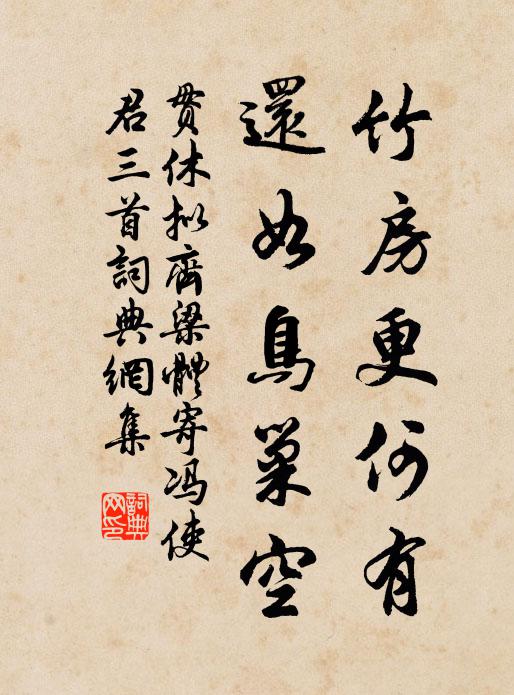 竹房更何有
還如鳥巢空
貫休擬齊梁體寄馮使
君三首詞典網集
詞典
网印